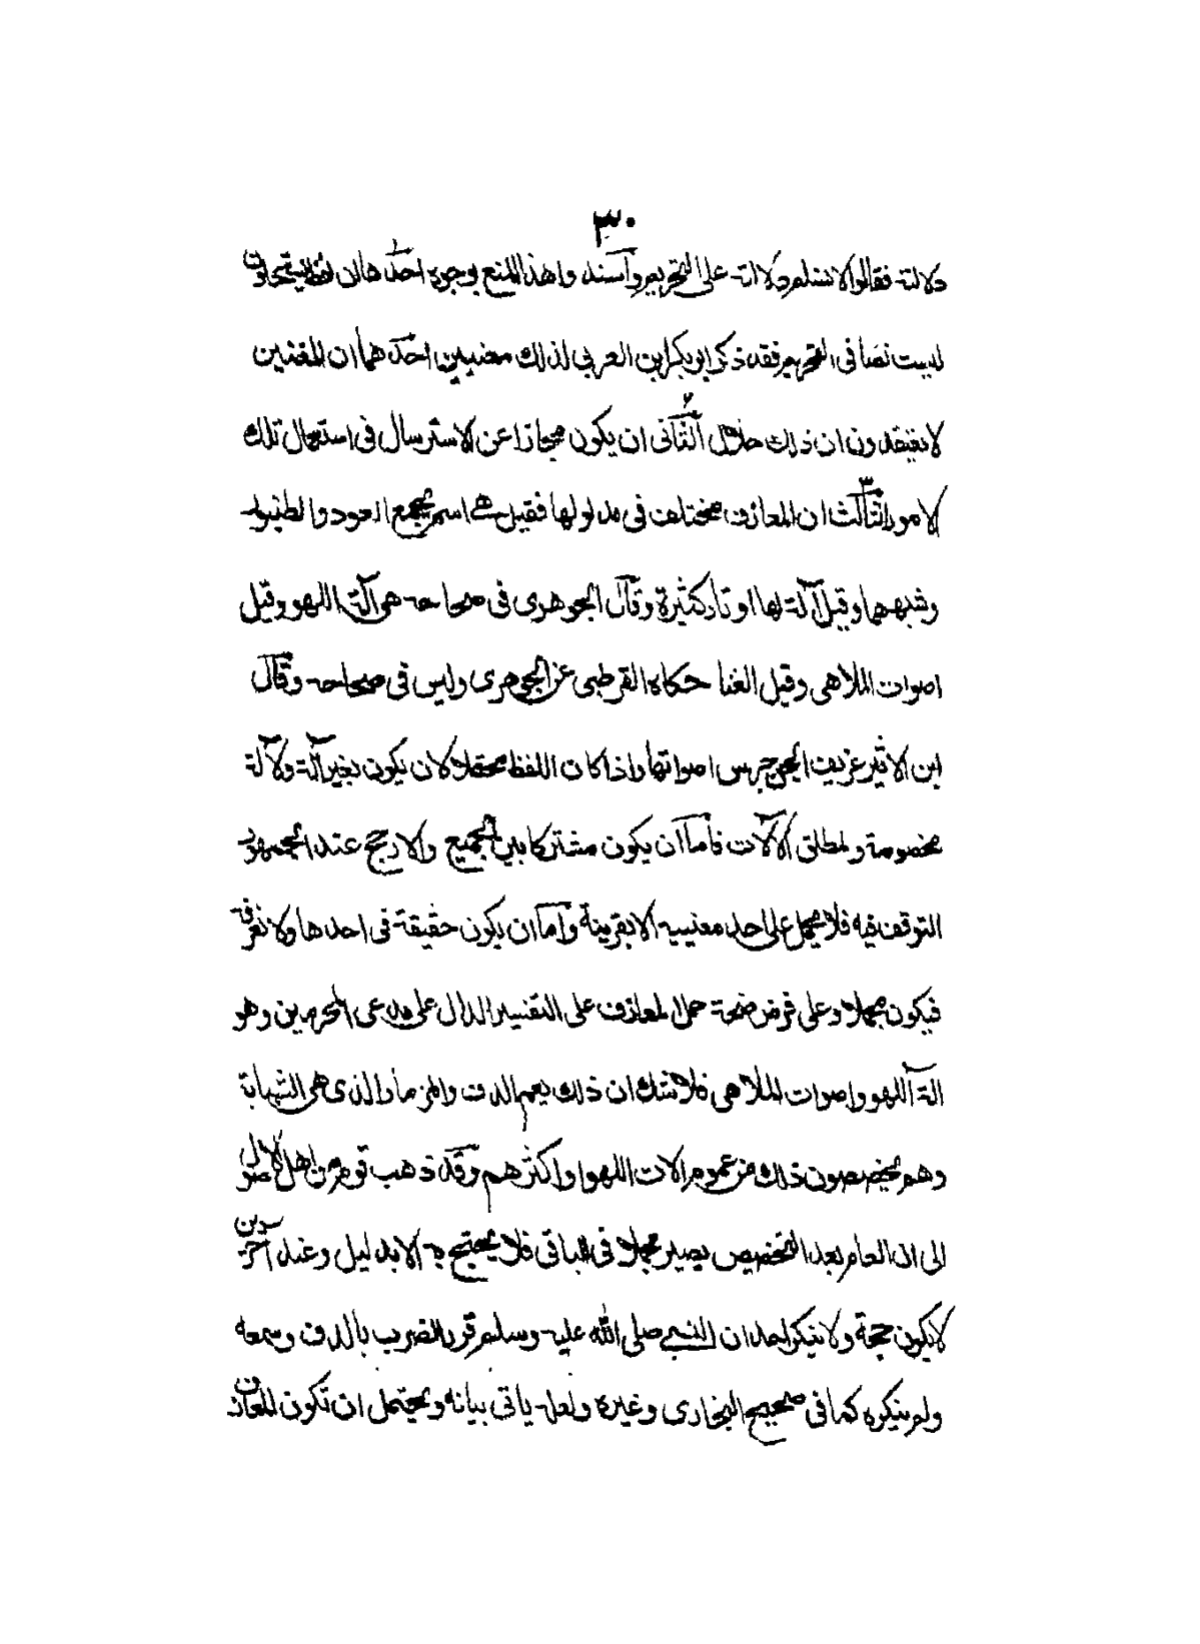 ٣٠
دلالته فقالوا لا نسلم دلالته على التحريم وأسندوا هذا المنع بوجوه احدها ان لفظ يستحلون
ليست نصا في التحريم فقد ذكر ابو بكر ابن العربي لذلك معنيين احدهما ان المعنى
لا يعتقدون ان ذلك حلال الثانى ان يكون مجازا عن الاسترسال فى استعمال تلك
الامور الثالث ان المعازف مختلف فى مدلولها فقيل هى اسم يجمع العود والطنبور
وشبههما وقيل آلة لها اوتار كثيرة وقال الجوهرى فى صحاحه هى آلة اللهو وقيل
اصوات الملاهى وقيل الغنا حكاه القرطبى عن الجوهرى وليس فى صحاحه وقال
ابن الاثير عزيف الجن جرس اصواتها واذا كان اللفظ محتملا لان يكون بغير آلة ولآلة
مخصوصة ولمطلق الآلات فأما أن يكون مشتركا بين الجميع والارجح عند الجمهور
التوقف فيه فلا يحمل على احد معنييه الا بقرينة وأما ان يكون حقيقة فى احدها ولا نعرفه
فيكون مجملا وعلى فرض صحة حمل المعازف على التفسير الدال على مدعى المحرمين وهو
آلة اللهو واصوات الملاهى فلا شك ان ذلك يعم الدف والمزمار الذى هى الشبابة
وهم يخصصون ذلك من عموم الات اللهو او اكثرهم وقد ذهب قوم من اهل الاصول
الى ان العام بعد التخصيص يصير مجملا فى الباقى فلا يحتج به الا بدليل وعند آخرين
لا يكون حجة ولا ينكر احد ان النبى صلى الله عليه وسلم قرر الضرب بالدف وسمعه
ولم ينكره كما فى صحيح البخارى وغيره ولعله ياتى بيانه ويحتمل ان تكون المعازف